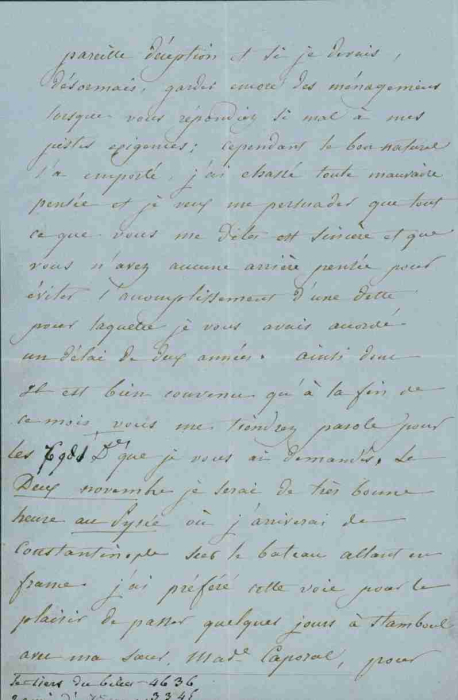 pareille déception et si je devais,
désormais, garder encore des ménagemens
lorsque vous répondiez si mal à mes
justes exigences; cependant le bon naturel
l'a emporté, j'ai chassé toute mauvaise
pensée et je veux me persuader que tout
ce que vous me dites est sincère et que
vous n'avez aucune arrière pensée pour
éviter l'accomplissement d'une dette
pour laquelle je vous avais accordé
un délai de deux années. ainsi donc
il est bien convenu qu'à la fin de
ce mois vous me tiendrez parole pour
les que je vous ai demandés. Le
Deux novembre je serai de très bonne
heure au Pyrée où j'arriverai de
Constantinople sur le bateau allant en
france. j'ai préféré cette voie pour le
plaisir de passer quelques jours à Stamboul
avec ma sœur, Mad.e Caporal, pour
Le tiers du 4636
3345